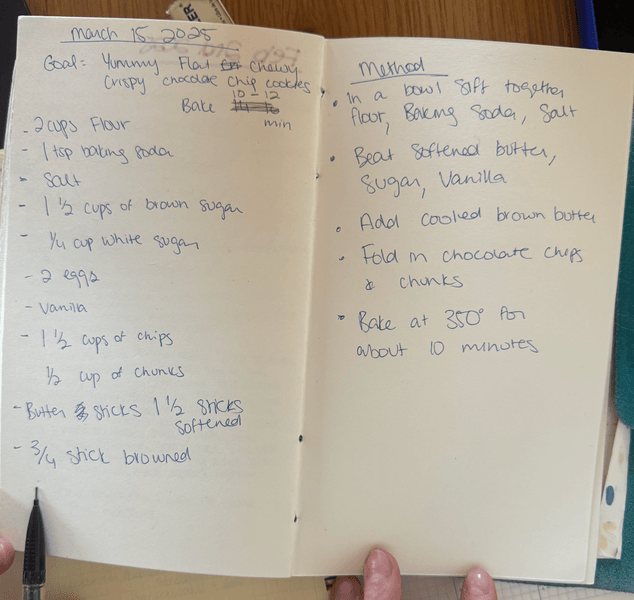 March 15 2025
Goal= Yummy Flat Chewy
Crispy chocolate chip cookies
10-12
Bake
min
- 2 cups Flour
- 1 tsp baking soda
- Salt
- 1 1/2 cups of brown sugar
- 1/4 cup white sugar
- 2 eggs
- Vanilla
- 1 1/2 cups of chips
1/2 cup of chunks
- Butter sticks 1 1/2 sticks
softened
- 3/4 stick browned
Method
• In a bowl sift together
flour, Baking Soda, Salt
• Beat softened butter,
Sugar, Vanilla
• Add cooled brown butter
• Fold in chocolate chips
& chunks
• Bake at 350° for
about 10 minutes